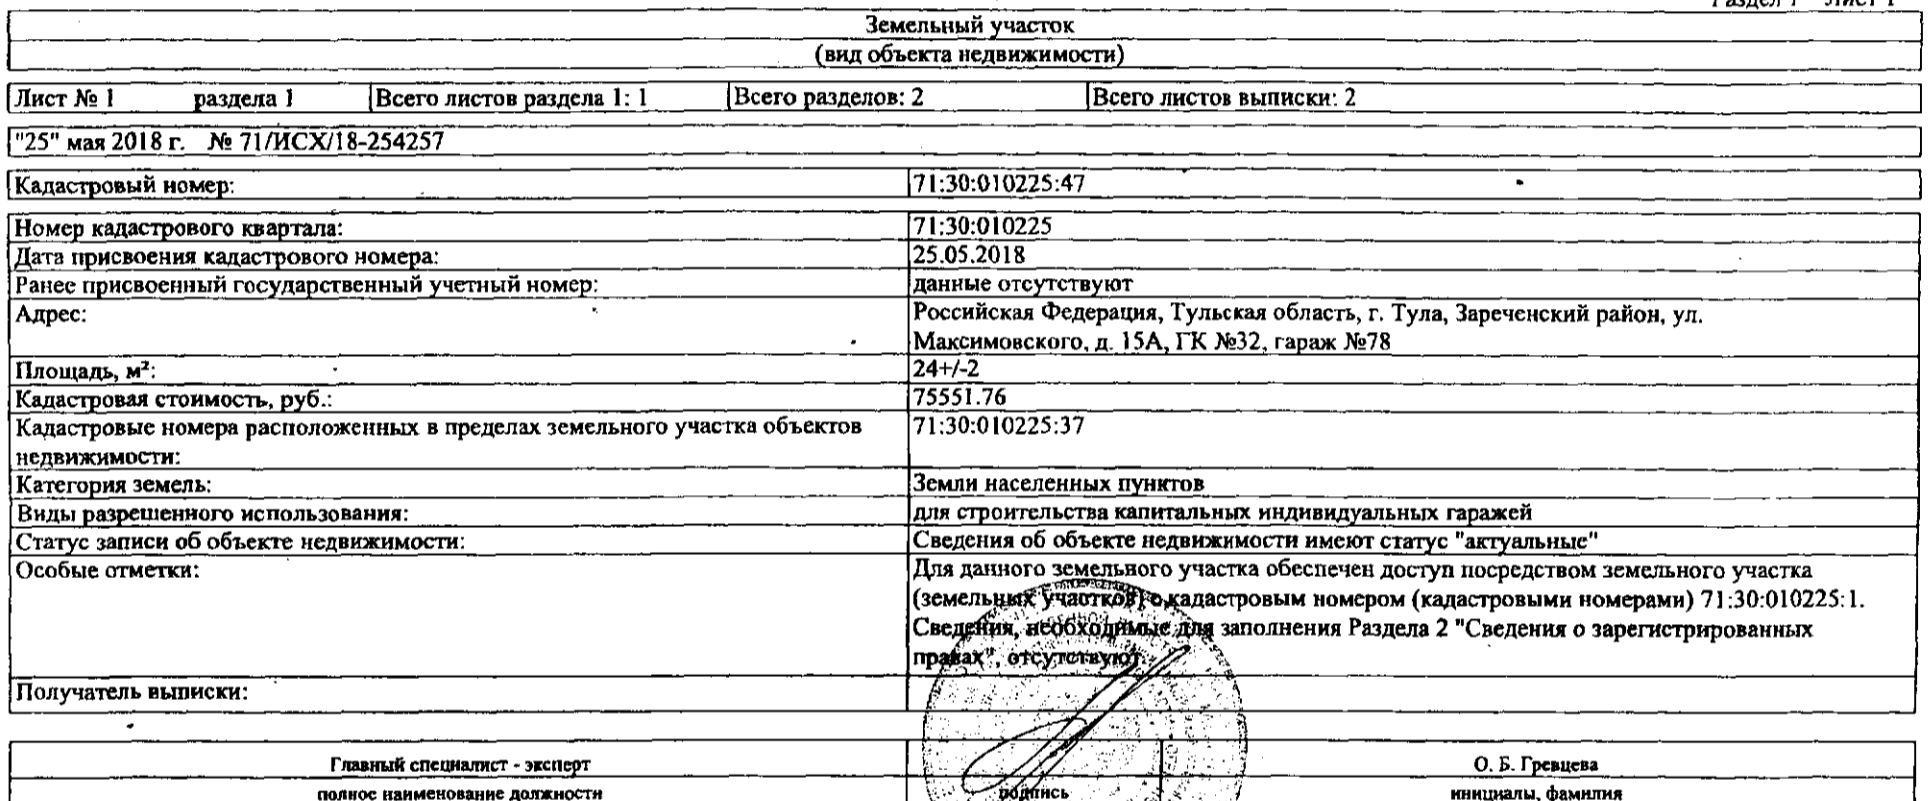 Раздел 1 Лист 1
Земельный участок
(вид объекта недвижимости)
Лист № 1 раздела 1 Всего листов раздела 1: 1 Всего разделов: 2 Всего листов выписки: 2
"25" мая 2018 г. № 71/ИСХ/18-254257
Кадастровый номер: 71:30:010225:47
Номер кадастрового квартала: 71:30:010225
Дата присвоения кадастрового номера: 25.05.2018
Ранее присвоенный государственный учетный номер: данные отсутствуют
Адрес: Российская Федерация, Тульская область, г. Тула, Зареченский район, ул.
Максимовского, д. 15А, ГК №32, гараж №78
Площадь, м²: 24+/-2
Кадастровая стоимость, руб.: 75551.76
Кадастровые номера расположенных в пределах земельного участка объектов 71:30:010225:37
недвижимости:
Категория земель: Земли населенных пунктов
Виды разрешенного использования: для строительства капитальных индивидуальных гаражей
Статус записи об объекте недвижимости: Сведения об объекте недвижимости имеют статус "актуальные"
Особые отметки: Для данного земельного участка обеспечен доступ посредством земельного участка
(земельных участков) с кадастровым номером (кадастровыми номерами) 71:30:010225:1.
Сведения, необходимые для заполнения Раздела 2 "Сведения о зарегистрированных
правах", отсутствуют.
Получатель выписки:
Главный специалист - эксперт О. Б. Гревцева
полное наименование должности подпись инициалы, фамилия